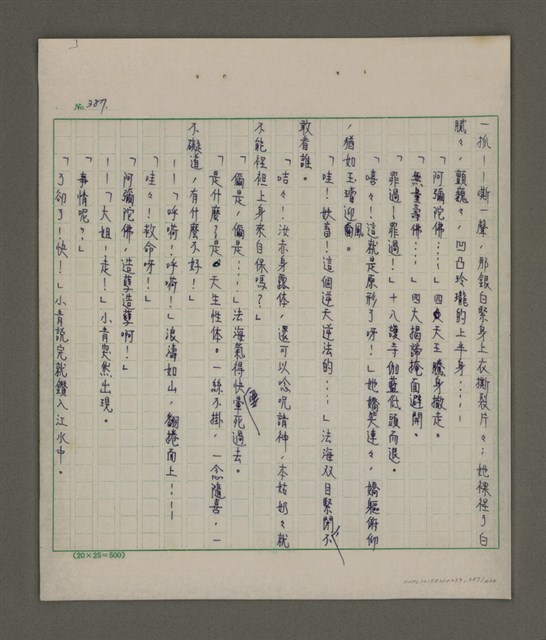 No. 387.
一抓——嘶一聲，那銀白緊身上衣撕裂片々；她裸裎了白
膩々，顫巍々，凹凸玲瓏的上半身……
「阿彌陀佛……」四大天王騰身撤走。
「無量壽佛…」四大揭諦掩面避開。
「罪過！罪過！」十八護寺伽藍低頭而退。
「嘻々！這就是原形了呀！」她嬌笑連々，嬌軀俯仰
，猶如玉璿迎風。
「哇！妖畜！這個逆天逆法的……」法海双目緊閉不
敢看誰。
「咭々！汝亦身露体，還可以唸呪請神，本姑奶々就
不能裎袒上身來自保嗎？」
「偏是，偏是…」法海氣得快暈死過去。
「是什麼？是天生性体。一絲不掛，一念隨喜，一
不礙道，有什麼不好！」
——「呼嗬！呼嗬！」浪濤如山，翻捲而上……
「哇々！救命呀！」
「阿彌陀佛，造孽造孽啊！」
——「大姐！走！」小青突然出現。
「事情呢？」
「了卻了！快！」小青說完就鑽入江水中。
(20×25=500)